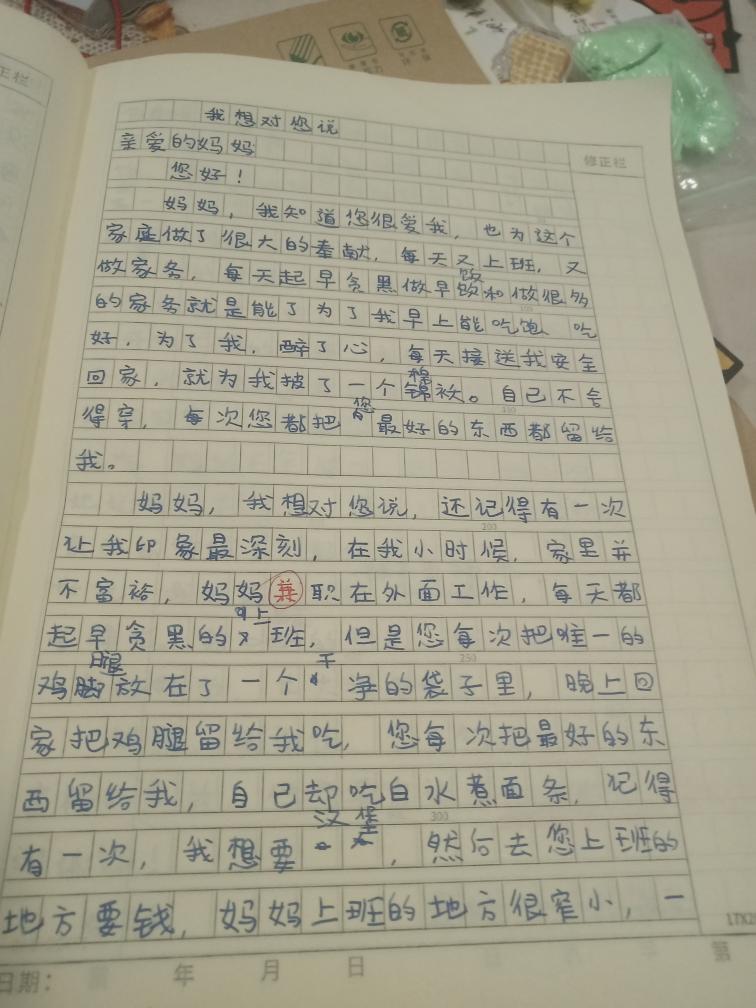 正栏
修正栏
我想对您说
亲爱的妈妈
您好！
妈妈，我知道您很爱我，也为这个
家庭做了很大的奉献，每天又上班，又
做家务，每天起早贪黑做早饭和做很多
的家务就是能了为了我早上能吃饱，吃
好，为了我，醉了心，每天接送我安全
回家，就为我披了一个棉袄。自己不舍
得穿，每次您都把您最好的东西都留给
我。
妈妈，我想对您说，还记得有一次
让我印象最深刻，在我小时候，家里并
不富裕，妈妈兼职在外面工作，每天都
起早贪黑的上班，但是您每次把唯一的
鸡腿放在了一个干净的袋子里，晚上回
家把鸡腿留给我吃，您每次把最好的东
西留给我，自己却吃白水煮面条，记得
有一次，我想要汉堡，然后去您上班的
地方要钱，妈妈上班的地方很窄小，一
200
250
300
日期： 年 月 日
第